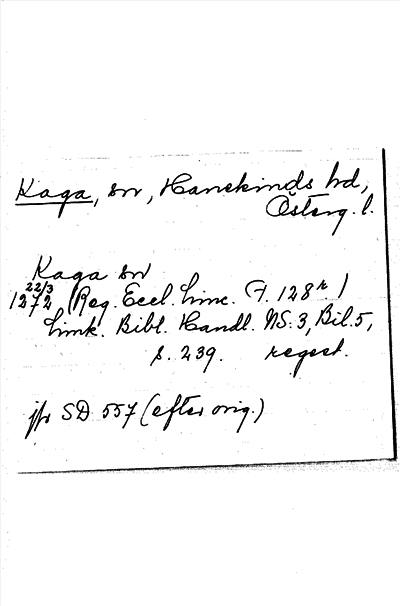 Kaga, sn, Hanekinds hd,
Österg. l.
Kaga sn
22/3
1272 (Reg. Eccl. Linc. F. 128r.)
Link. Bibl. Handl. NS. 3, Bil. 5,
s. 239. regest.
jfr SD 557 (efter orig.)